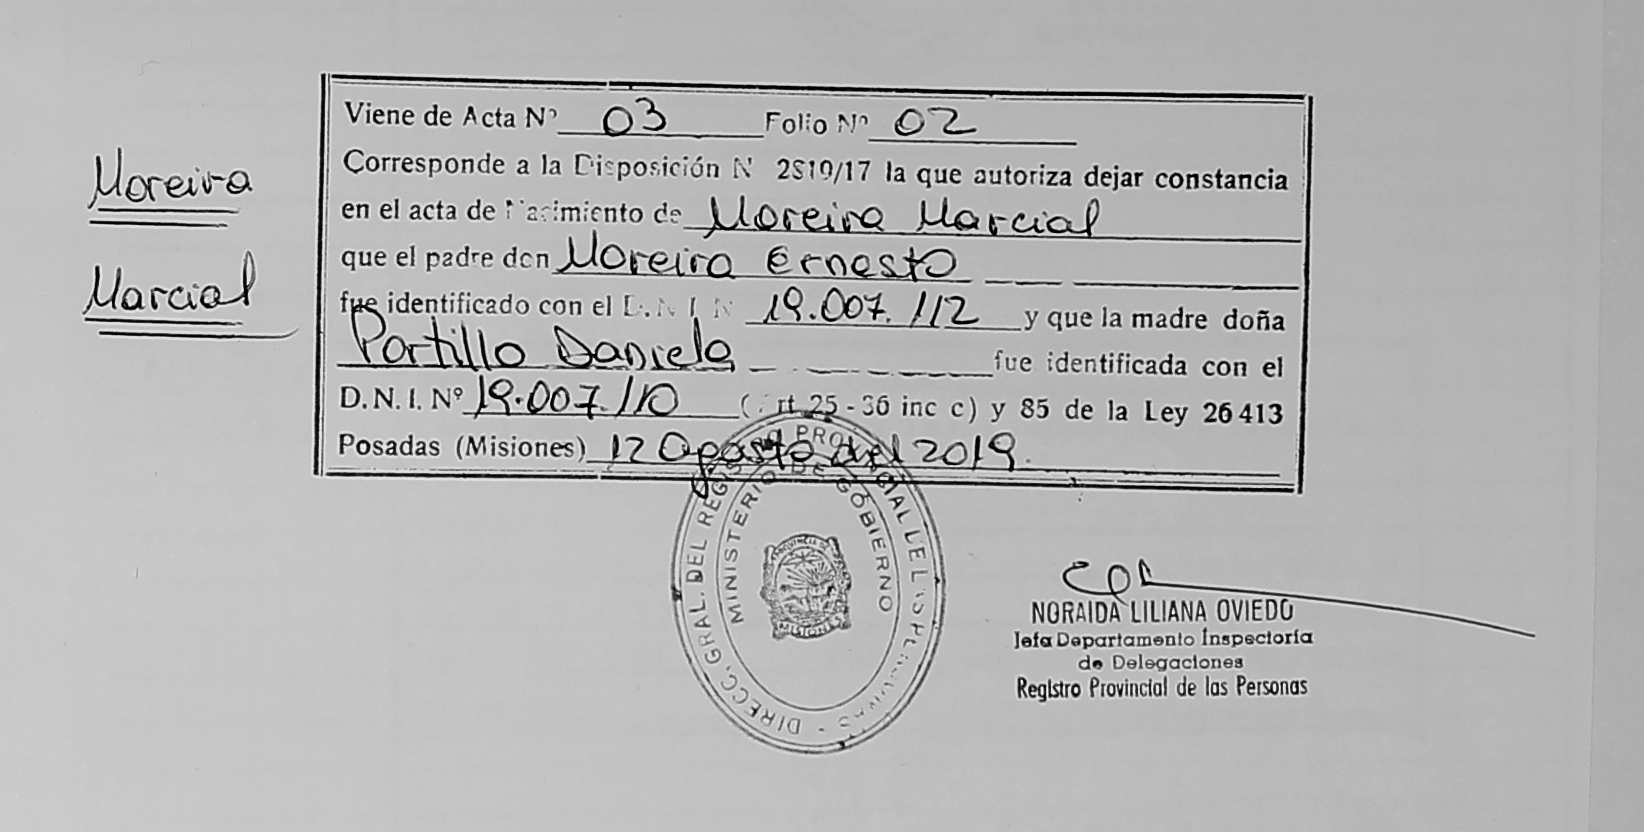 Moreira
Marcial
Viene de Acta Nº 03 Folio Nº 02
Corresponde a la Disposición N 2810/17 la que autoriza dejar constancia
en el acta de Nacimiento de Moreira Marcial
que el padre don Moreira Ernesto
fue identificado con el D.N.I. N 19.007.112 y que la madre doña
Portillo Daniela fue identificada con el
D.N.I. Nº 19.007.110 (Art 25 - 36 inc c) y 85 de la Ley 26413
Posadas (Misiones) 12 Agosto del 2019.
DIRECC. GRAL. DEL REGISTRO PROVINCIAL DE LAS PERSONAS
MINISTERIO DE GOBIERNO
PROVINCIA DE
MISIONES
NORAIDA LILIANA OVIEDO
Jefa Departamento Inspectoría
de Delegaciones
Registro Provincial de las Personas